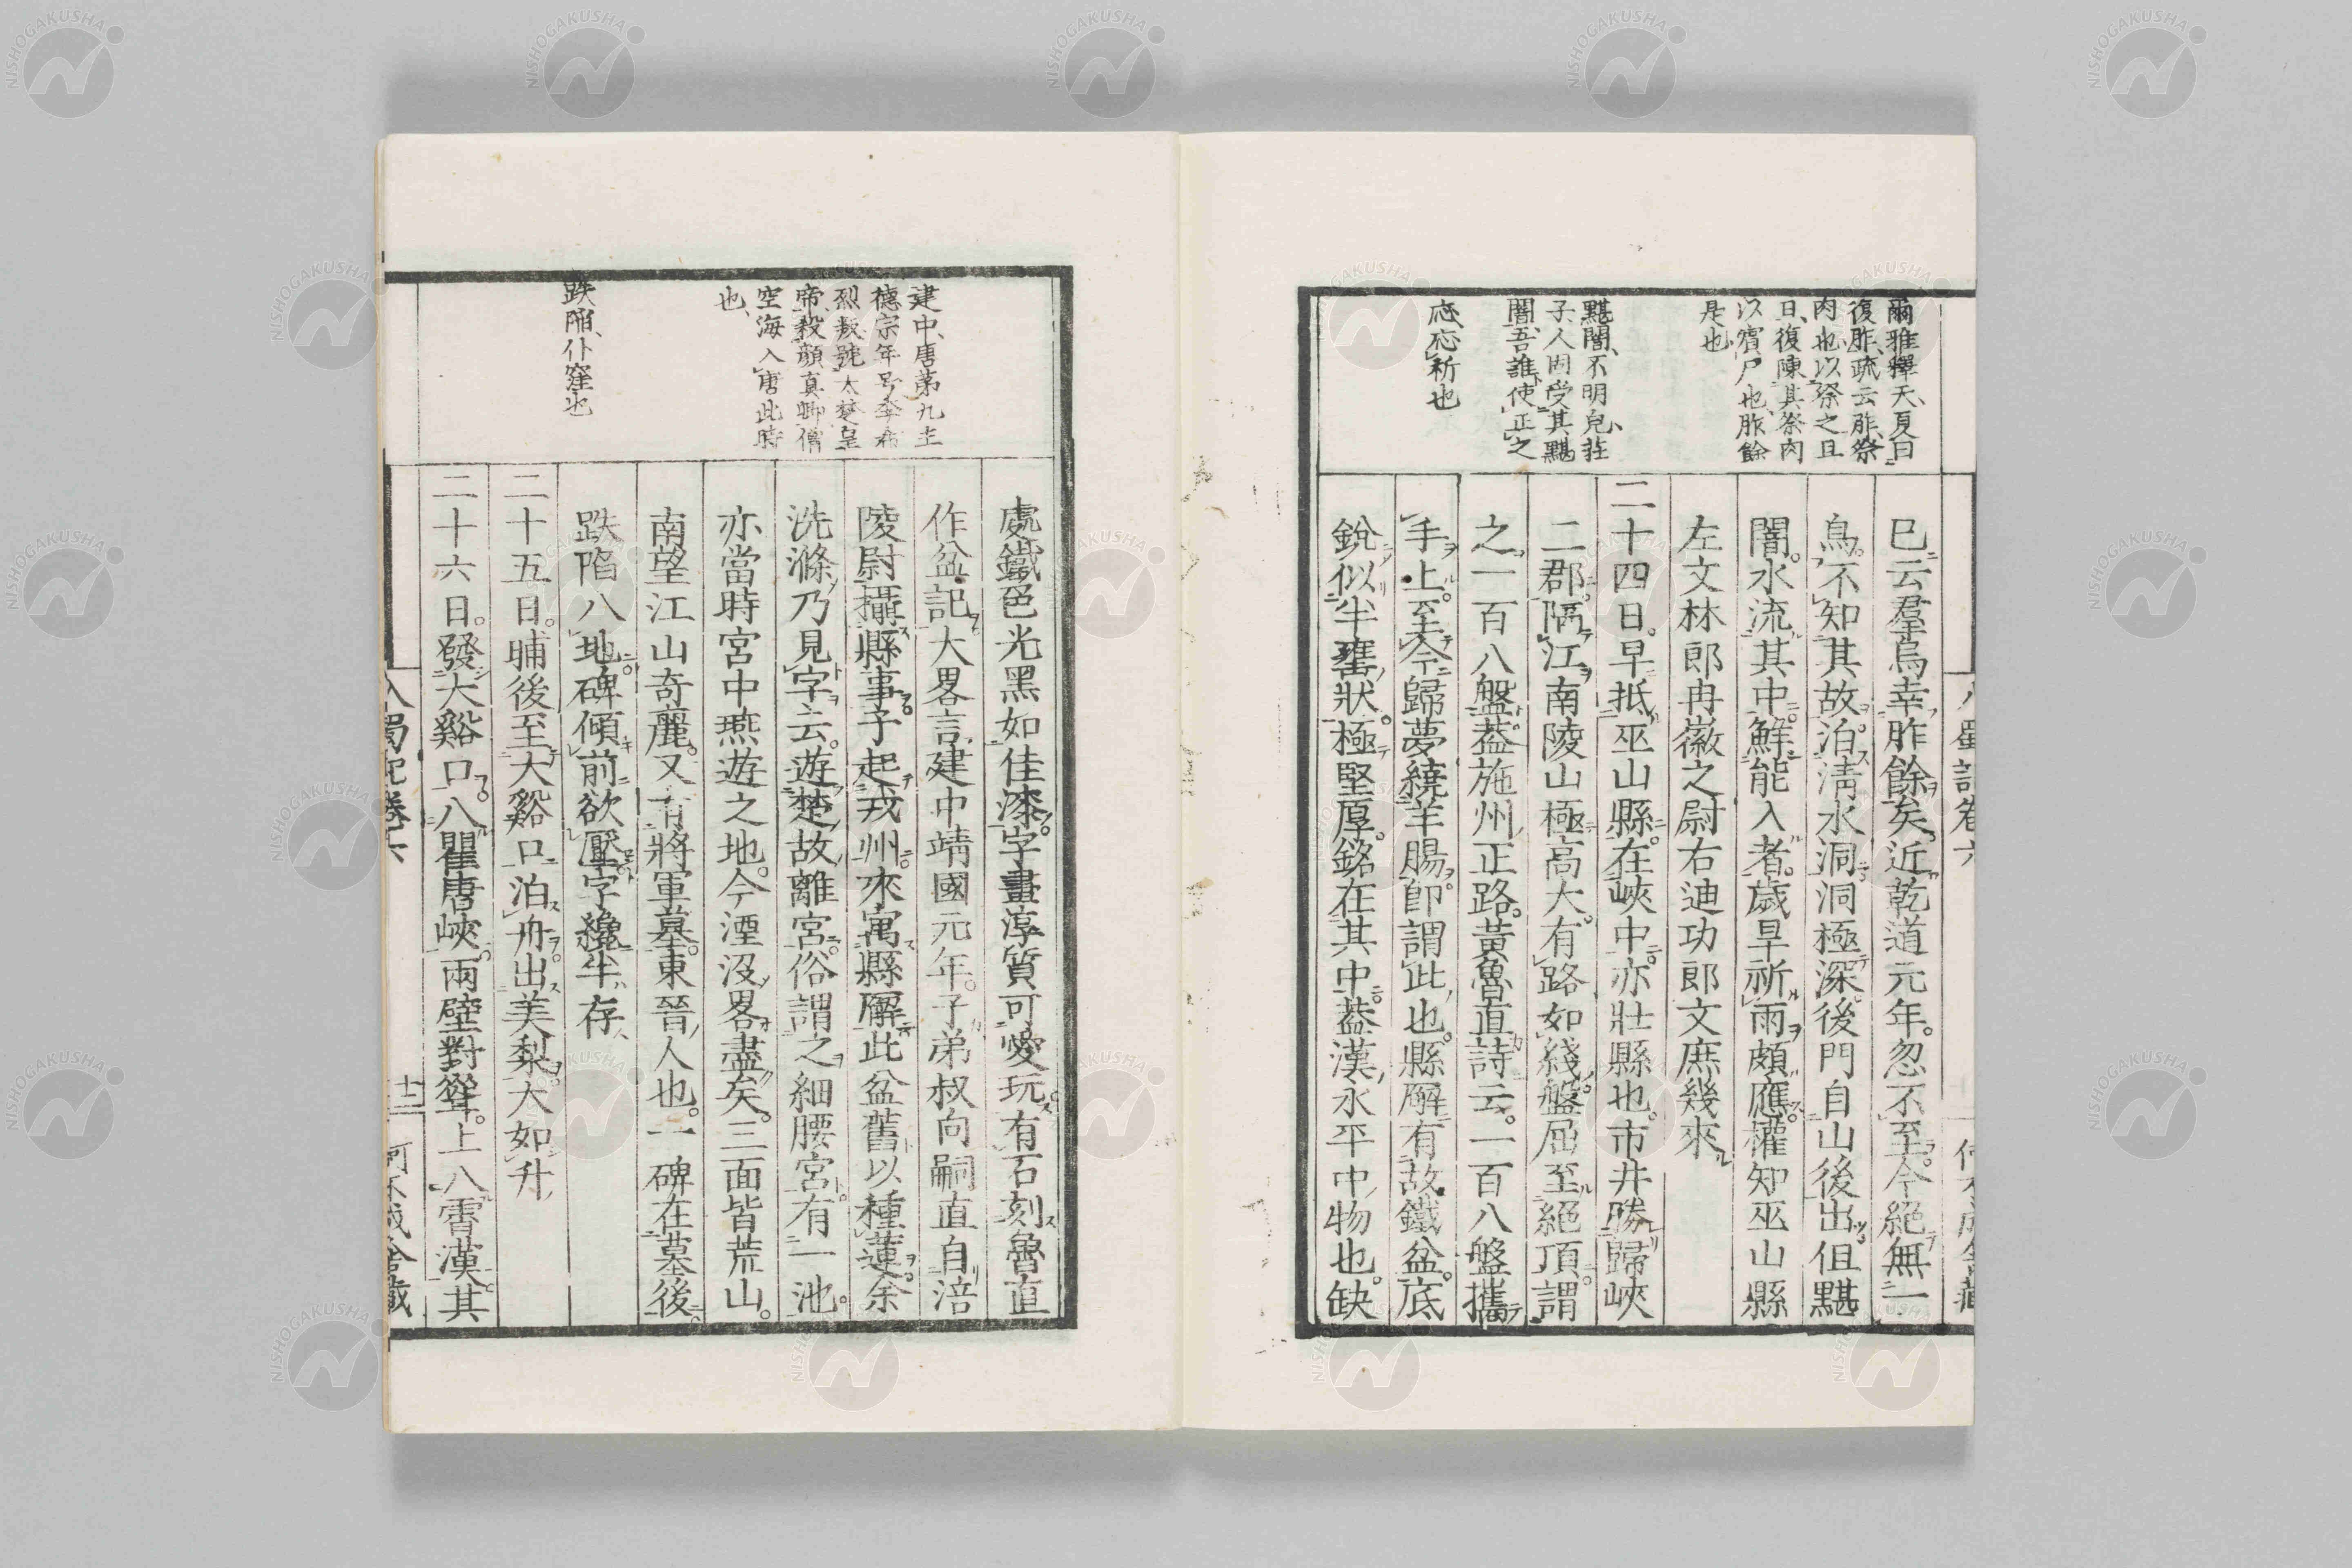 爾雅釋天、夏曰
復胙、疏云、胙、祭
肉也、以祭之且
日、復陳其祭肉
以賓尸也、胙餘
是也
黮闇、不明皃、莊
子人固受其黮
闇、吾誰使正之
巳云羣烏幸胙餘矣近乾道元年忽不至今絕無一
烏不知其故泊淸水洞洞極深後門自山後出但黮
闇水流其中鮮能入者歲旱祈雨頗應權知巫山縣
左文林郎冉徽之尉右迪功郎文庶幾來
二十四日早抵巫山縣在峽中亦壯縣也市井勝歸峽
二郡隔江南陵山極高大有路如綫盤屈至絕頂謂
之一百八盤葢施州正路黃魯直詩云一百八盤攜
手上至今歸夢繞羊腸卽謂此也縣廨有故鐵盆底
銳似半甕狀極堅厚銘在其中葢漢永平中物也缺
建中、唐第九主
德宗年号、李希
烈叛號大楚皇
帝、殺顏真卿、僧
空海入唐此時
也、
跌陷、仆窪也
處鐵色光黑如佳漆字畫淳質可愛玩有石刻魯直
作盆記大畧言建中靖國元年子弟叔向嗣直自涪
陵尉攝縣事予起戎州來寓縣廨此盆舊以種蓮余
洗滌乃見字云遊楚故離宮俗謂之細腰宮有一池
亦當時宮中燕遊之地今湮沒畧盡矣三面皆荒山
南望江山奇麗又有將軍墓東晉人也一碑在墓後
跌陷入地碑傾前欲壓字纔半存
二十五日晡後至大谿口泊舟出美梨大如升
二十六日發大谿口入瞿唐峽兩壁對聳上入霄漢其
入蜀記卷六
十二